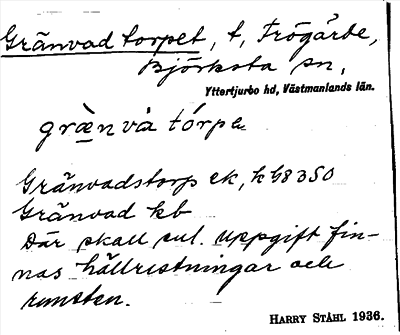 Gränvad torpet, t, Frögärde,
Björksta sn,
Yttertjurbo hd, Västmanlands län.
græ̀nvà tórpə
Gränvadstorp ek, k G8350
Gränvad kb
Där skall enl. uppgift fin-
nas hällristningar och
runsten.
HARRY STÅHL 1936.